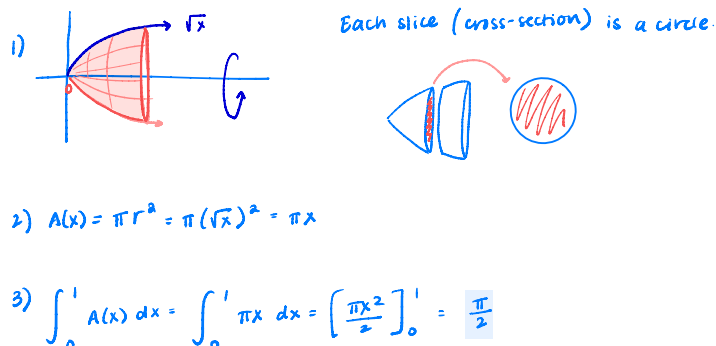 1)
√x
0
Each slice (cross-section) is a circle.
2) A(x) = πr² = π(√x)² = πx
3) ∫₀¹ A(x) dx = ∫₀¹ πx dx = [πx²/2]₀¹ = π/2